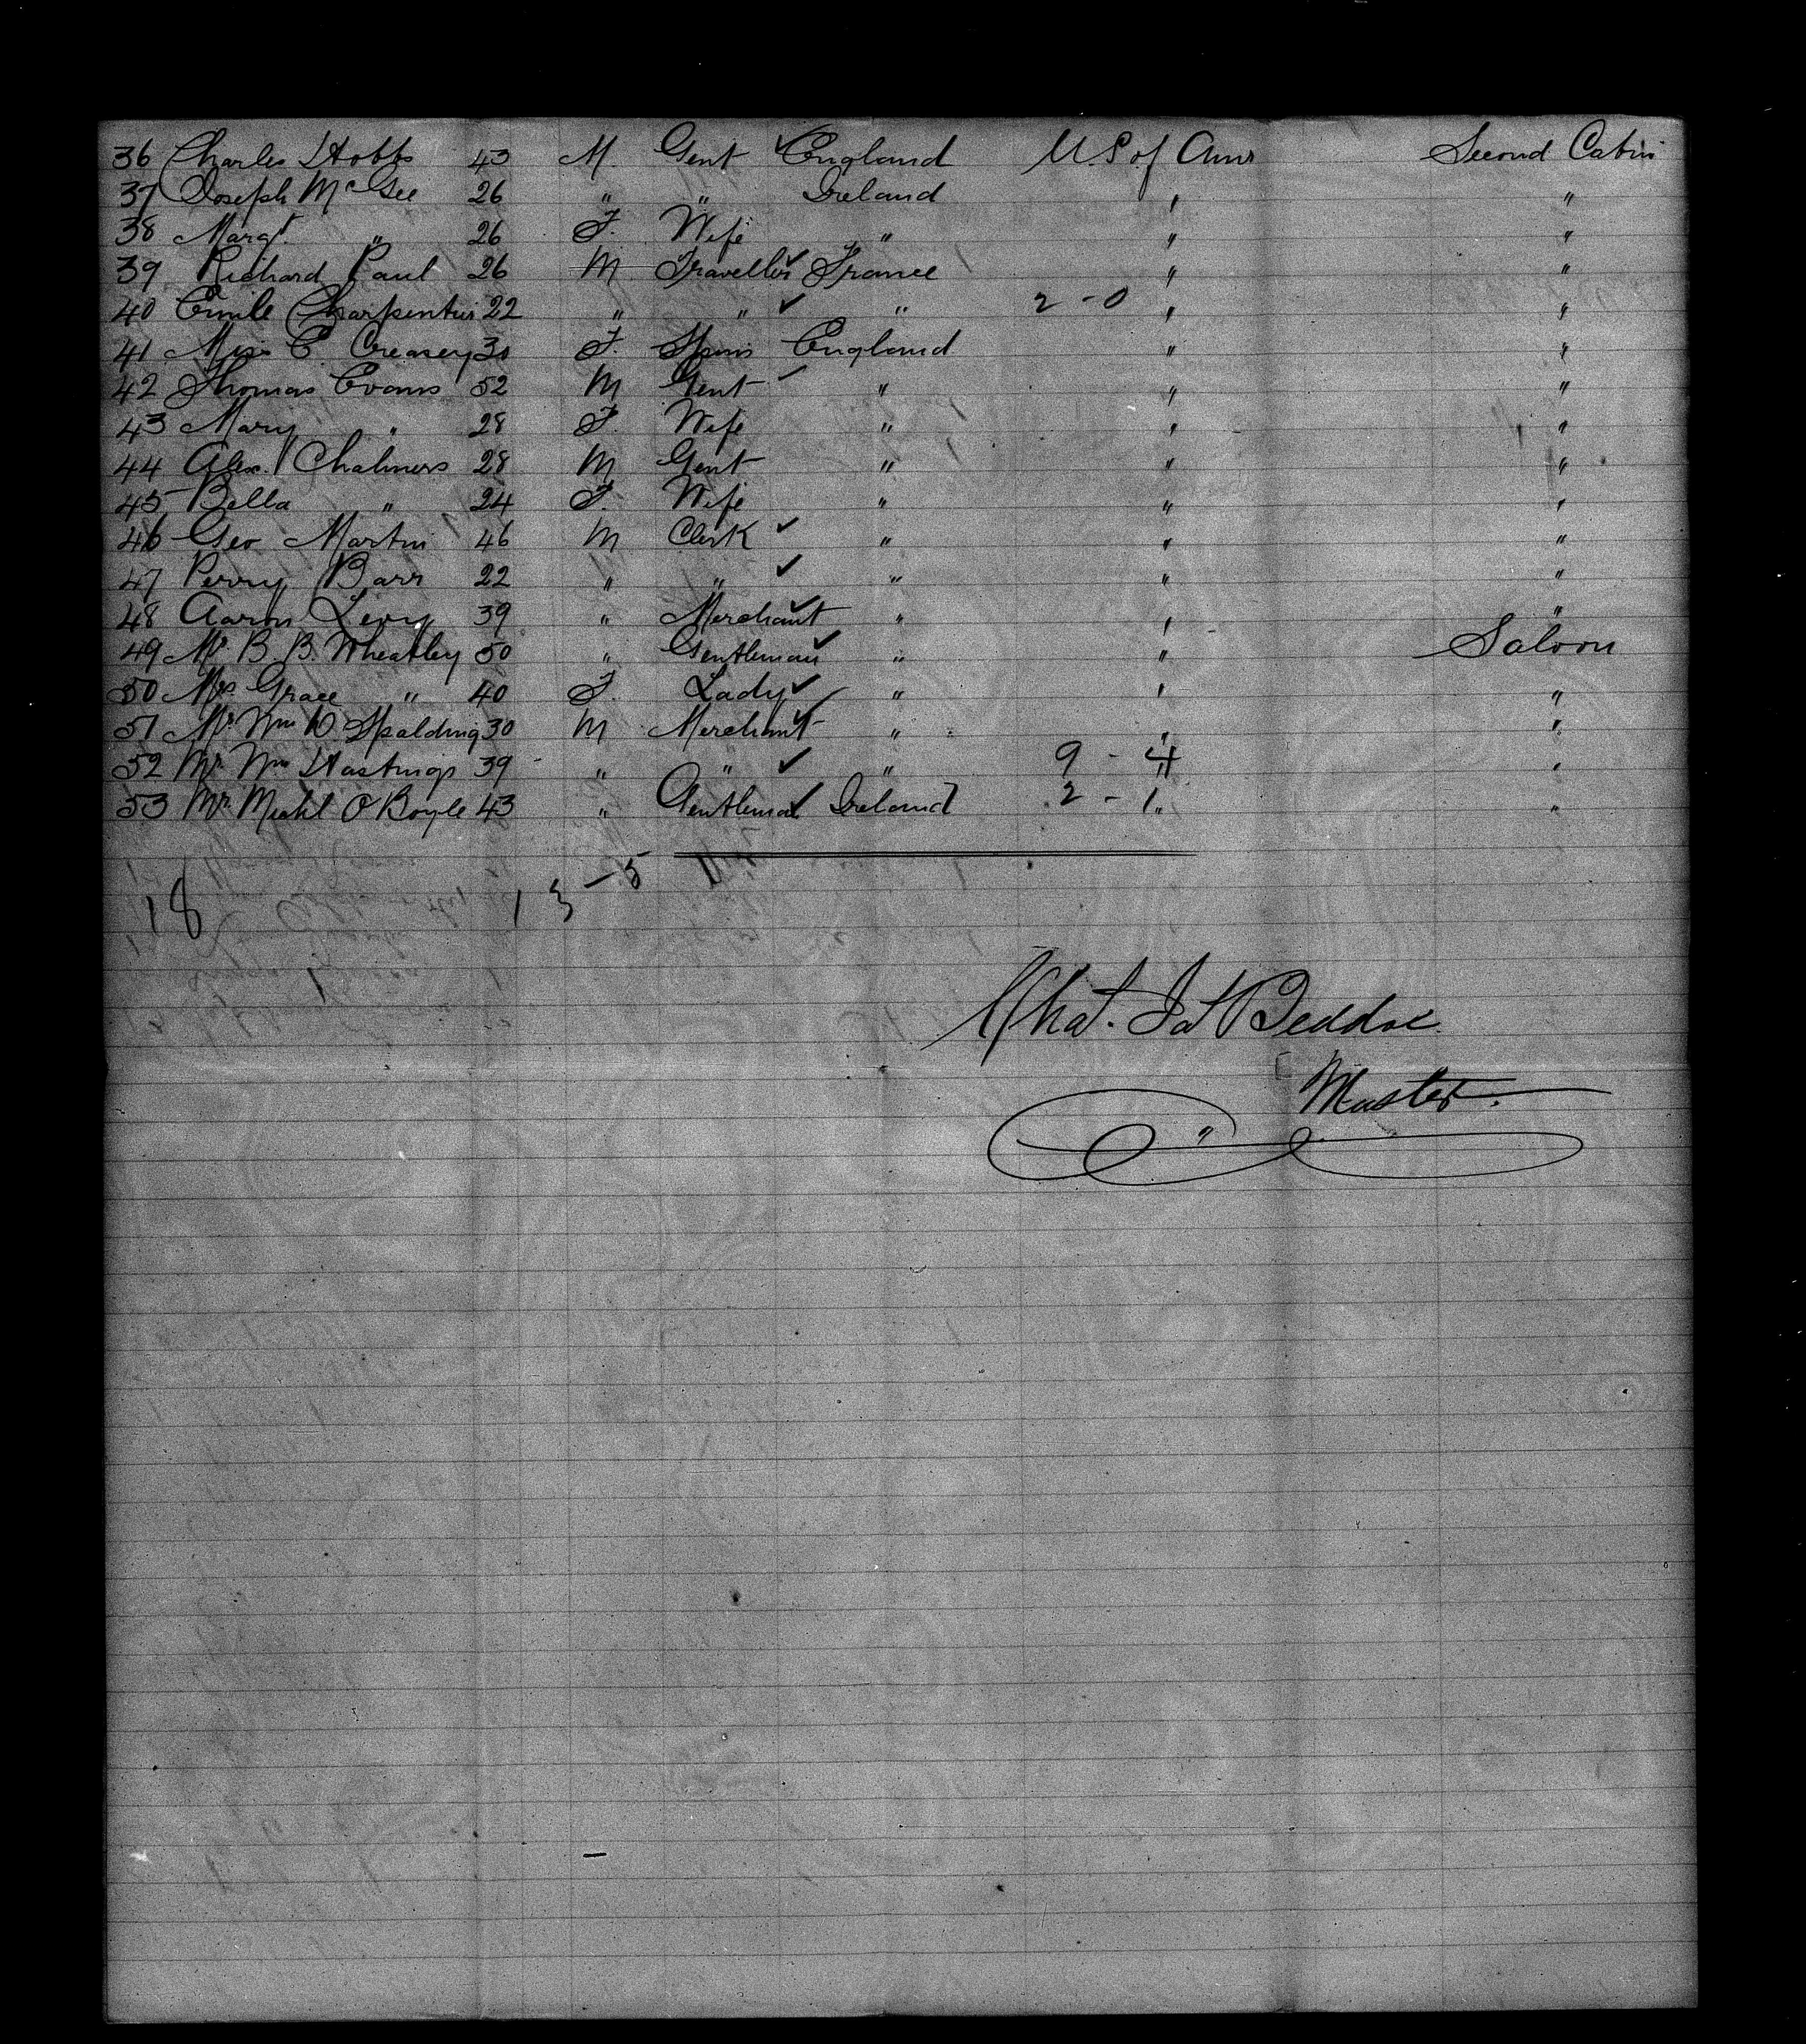 36 Charles Hobbs 43 M. Gent ✓ England U.S. of Amr Second Cabin
37 Joseph McGee 26 " " Ireland " "
38 Margt. " 26 F. Wife " " "
39 Richard Paul 26 M Traveller ✓ France " "
40 Emile Charpentier 22 " " ✓ " 2 - 0 " "
41 Miss E. Creasey 30 F. Spins England " "
42 Thomas Evans 52 M Gent ✓ " " "
43 Mary " 28 F. Wife " " "
44 Alex. Chalmers 28 M Gent " " "
45 Bella " 24 F. Wife " " "
46 Geo Martin 46 M Clerk ✓ " " "
47 Percy Barr 22 " " ✓ " " "
48 Aaron Levy 39 " Merchant ✓ " " "
49 Mr. B. B. Wheatley 50 " Gentleman ✓ " " Saloon
50 Mrs Grace " 40 F. Lady ✓ " " "
51 Mr. Wm D. Spalding 30 M Merchant ✓ " " "
52 Mr. Wm Hastings 39 " " ✓ " 9 - 4 " "
53 Mr. Michl O'Boyle 43 " Gentleman ✓ Ireland 2 - 1 " "
18 13 - 5
Beddoe
Master.